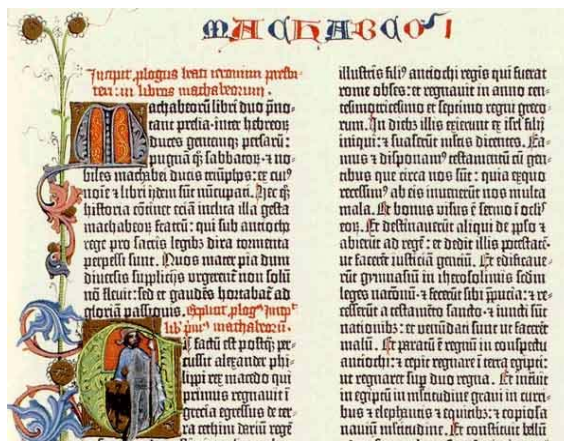 MACHABEOꝜ I
Incipit ꝓlogus beati ieronimi presbi-
teri in libros machabeorum.
Machabeorũ libri duo p̄no-
tant prelia· inter hebreoꝝ
duces gentemqꝫ persarũ:
pugnã qꝫ sabbatoꝝ· ⁊ no-
biles machabei ducis triũphos: ex cuiꝰ
noīe ⁊ libri idem sūt nūcupati. Hec qꝫ
historia cōtinet eciā inclita illa gesta
machabeoꝝ fratrū: qui sub antiocho
rege pro sacris legibꝫ dira tormenta
perpessi sunt. Quos mater pia dum
diuersis suppliciis urgerent non solū
nō fleuit: sed et gaudēs hortabat̄ ad
gloriā passionis. Explicit ꝓlogꝰ Incipit
lib' primꝰ machabeorū.
Et factū est postqꝫ per-
cussit alexander phi-
lippi rex macedo qui
primus regnauit ī
grecia egressus de ter-
ra cethim dariū regē
illustris filiꝰ antiochi regis qui fuerat
rome obses: et regnauit in anno cen-
tesimotricesimo et septimo regni greco-
rum. In diebꝫ illis exierunt ex isrl̄ filii
iniqui: ⁊ suaserunt multis dicentes. Ea-
mus ⁊ disponamꝰ testamentū cū gen-
tibus que circa nos sūt: quia ex quo
recessimꝰ ab eis inuenerūt nos multa
mala. Et bonus visus ē sermo ī oclis'
eoꝝ. Et destinauerūt aliqui de pplo ⁊
abierūt ad regē: et dedit illis potestatē·
ut facerēt iusticiā genciū. Et edificaue-
rūt gymnasiū in iherosolimis scdm
leges nacionū· ⁊ fecerūt sibi ꝓpucia: ⁊ re-
cesserūt a testamēto sancto· ⁊ iuncti sūt
nationibꝫ: et uenūdati sunt ut facerēt
malū. Et paratū ē regnū in conspectu
antiochi: ⁊ cepit regnare ī terra egipti:
ut regnaret sup duo regna. Et intrauit
in egiptū in multitudine graui in curri-
bus ⁊ elephantis ⁊ equitibꝫ: ⁊ copiosa
nauiū multitudine. Et constituit bellū